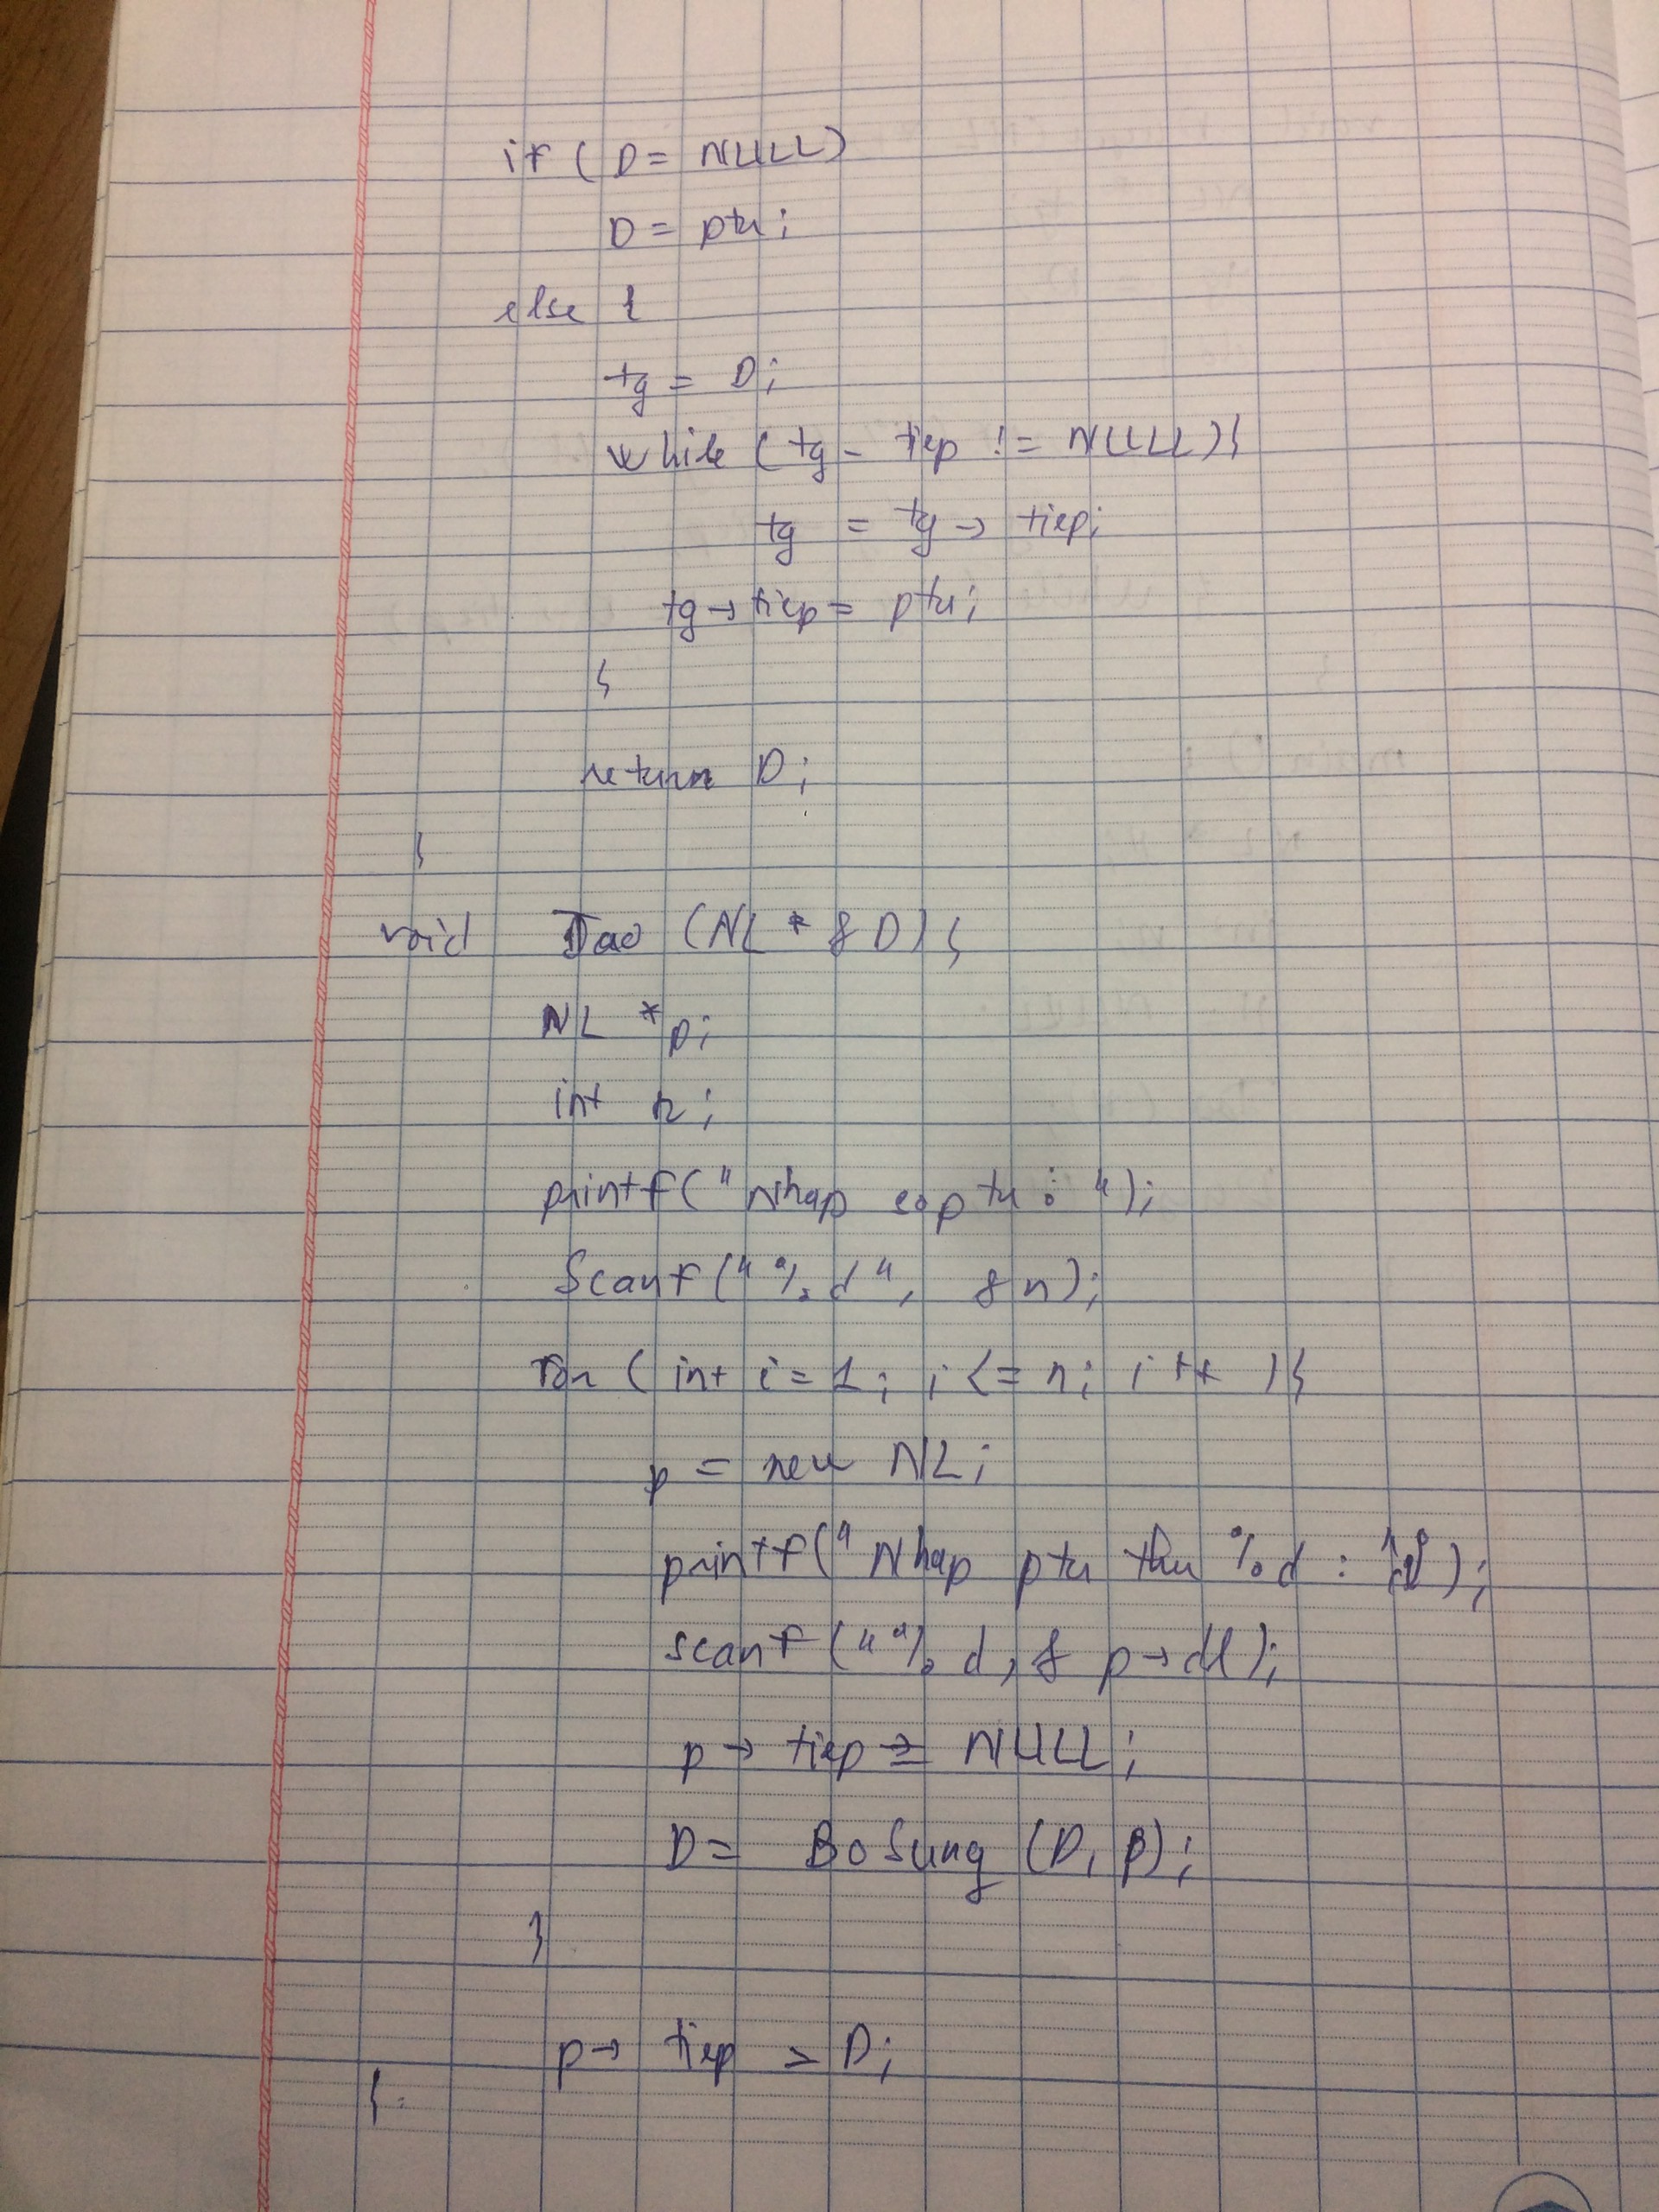 if ( D = NULL)
D = ptu;
else {
tg = D;
while (tg - tiep != NULL){
tg = tg → tiep;
tg → tiep = ptu;
}
return D;
}
void Tao (NL * & D) {
NL *p;
int n;
printf(" Nhap so ptu : ");
Scanf(" %d ", & n);
for ( int i = 1; i <= n; i ++ ){
p = new NL;
printf(" Nhap ptu thu %d : );
scanf (" %d, & p → dl);
p → tiep = NULL;
D = BoSung (D, p);
}
p → tiep = D;
}